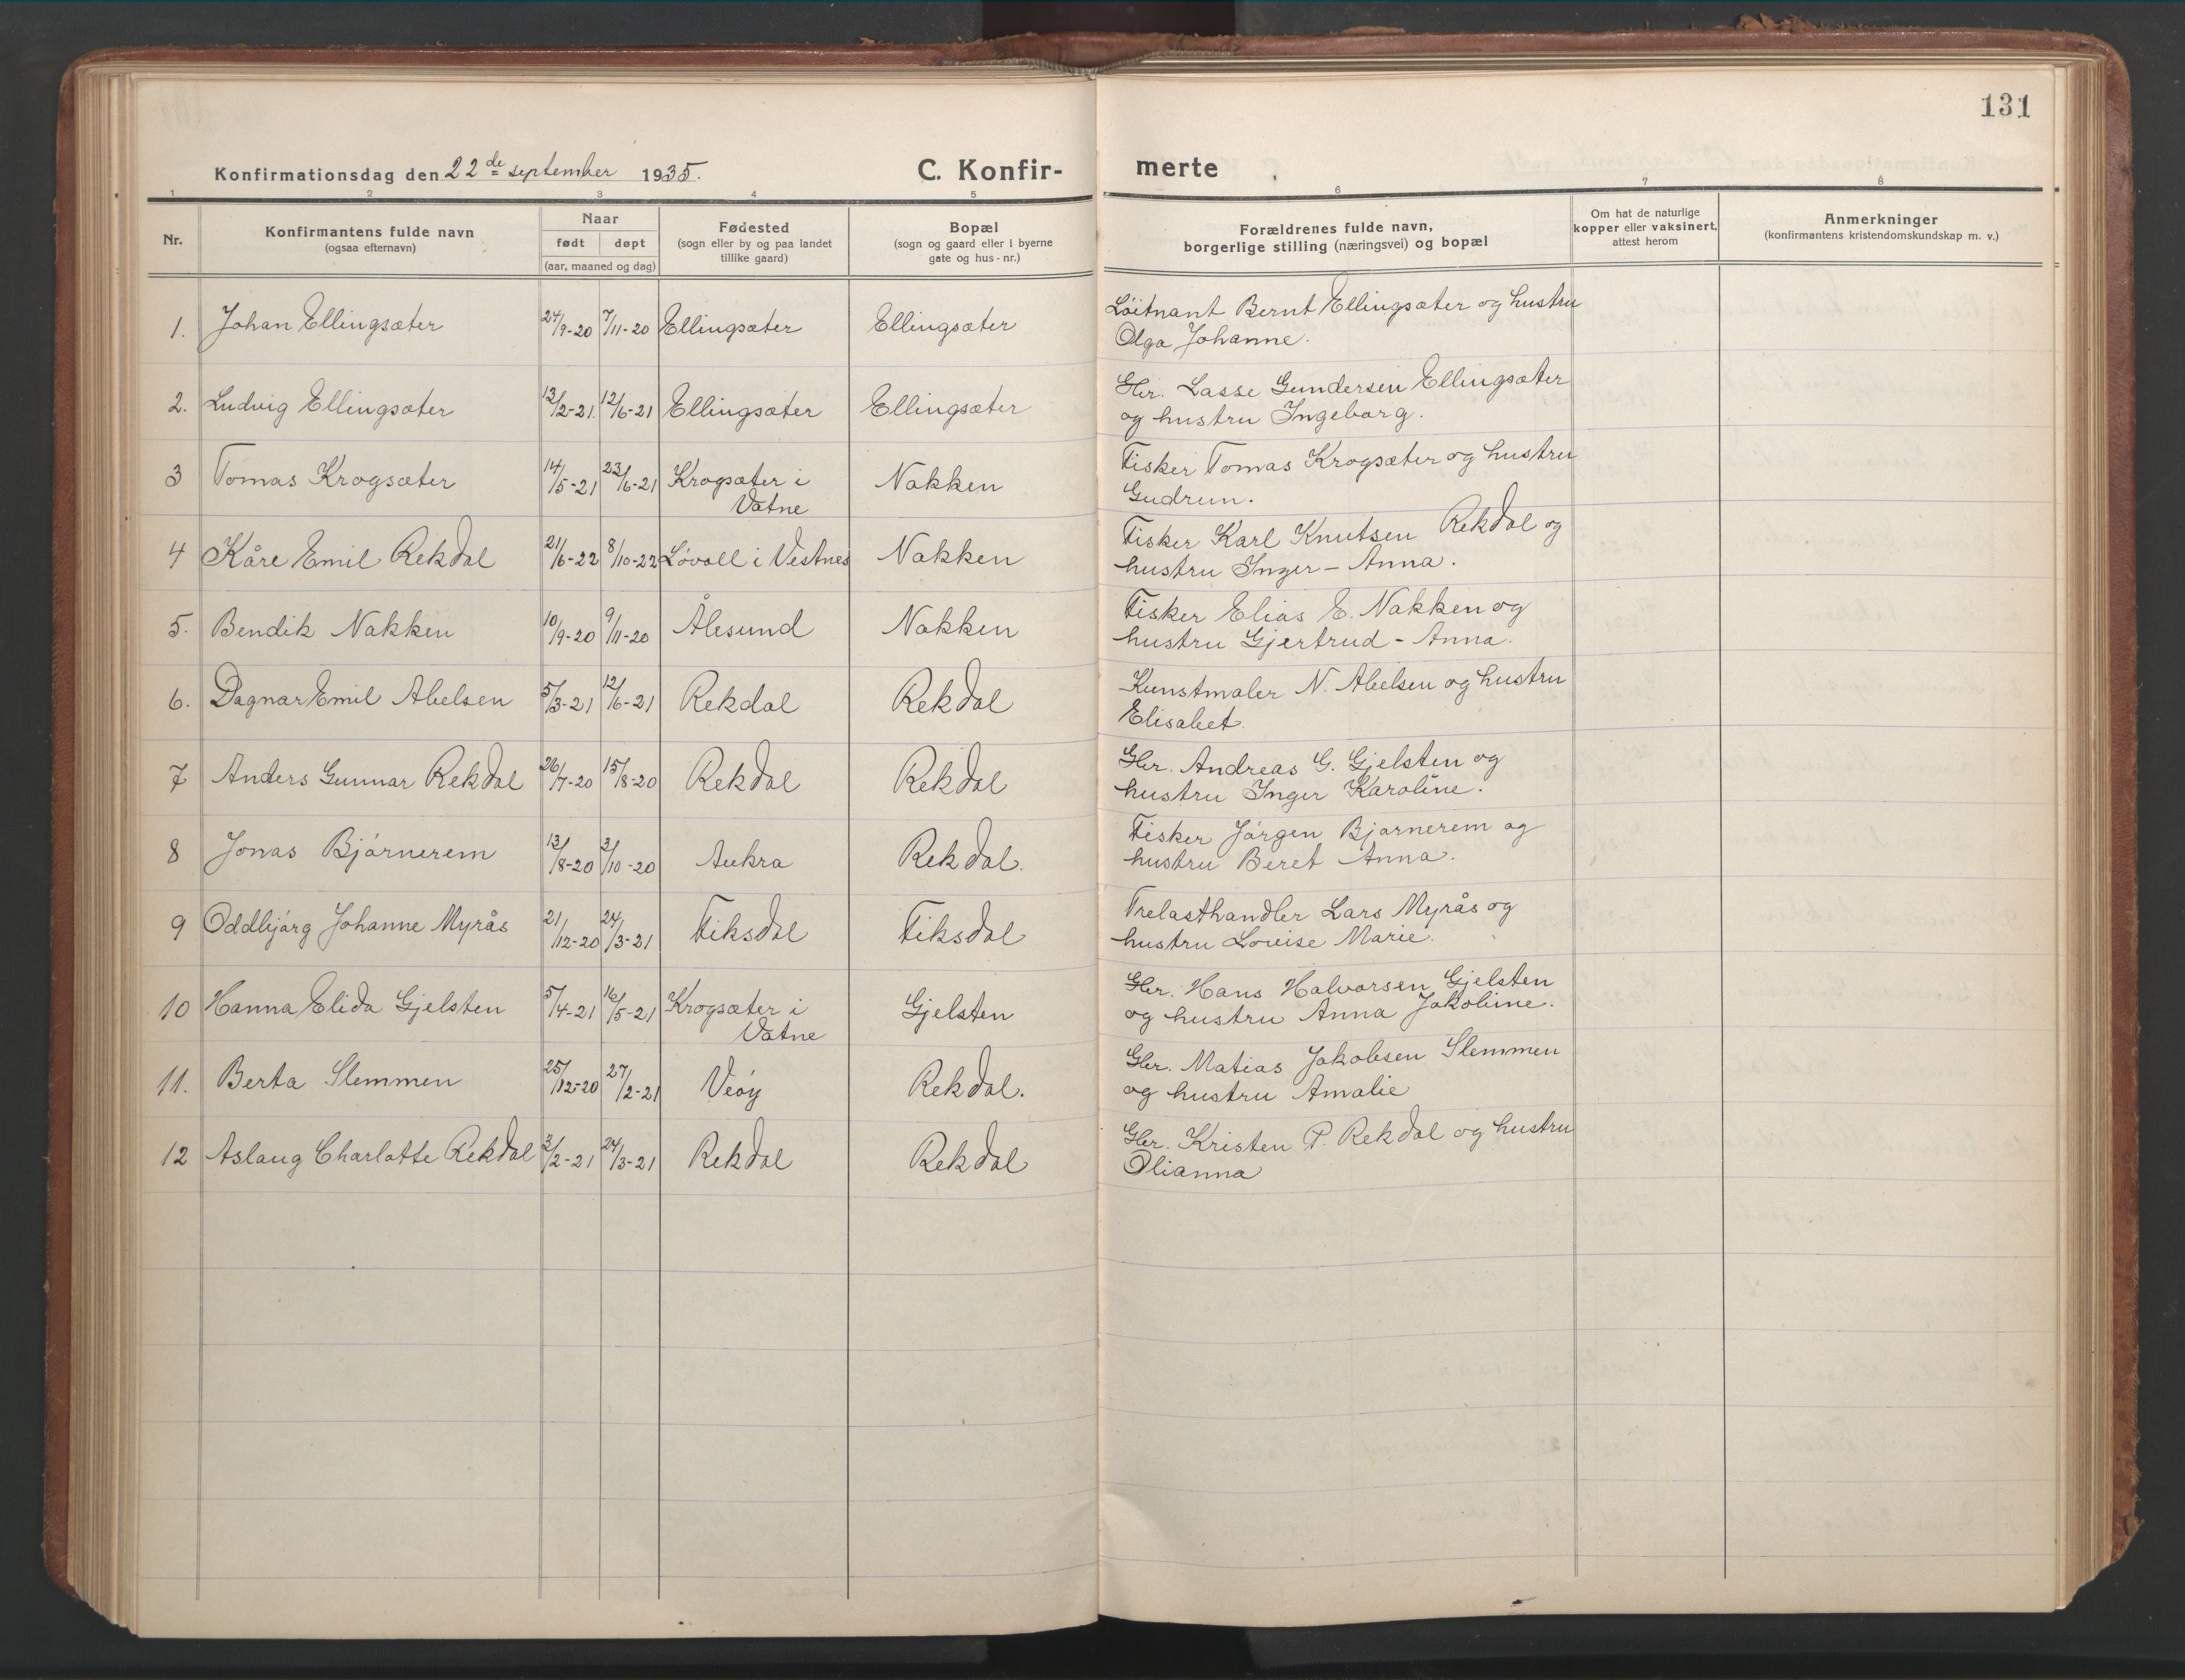 131
Konfirmationsdag den 22de september 1935. C. Konfir- merte
1 2 3 4 5 6 7 8
Nr. Konfirmantens fulde navn (ogsaa efternavn) Naar født døpt (aar, maaned og dag) Fødested (sogn eller by og paa landet tillike gaard) Bopæl (sogn og gaard eller i byerne gate og hus-nr.) Forældrenes fulde navn, borgerlige stilling (næringsvei) og bopæl Om hat de naturlige kopper eller vaksinert, attest herom Anmerkninger (konfirmantens kristendomskundskap m. v.)
1. Johan Ellingsæter 24/9-20 7/11-20 Ellingsæter Ellingsæter Löitnant Bernt Ellingsæter og hustru
Olga Johanne.
2. Ludvig Ellingsæter 13/2-21. 12/6-21 Ellingsæter Ellingsæter Gbr. Lasse Gundersen Ellingsæter
og hustru Ingeborg.
3 Tomas Krogsæter 14/5-21 23/6-21 Krogsæter i Nakken Fisker Tomas Krogsæter og hustru
Vatne Gudrun.
4 Kåre Emil Rekdal 21/6-22 8/10-22 Løvoll i Vestnes Nakken Fisker Karl Knutsen Rekdal og
hustru Inger-Anna.
5. Bendik Nakken 10/9-20 9/11-20 Ålesund Nakken Fisker Elias E. Nakken og
hustru Gjertrud-Anna.
6. Dagnar Emil Abelsen 5/3-21 12/6-21 Rekdal Rekdal Kunstmaler N. Abelsen og hustru
Elisabet.
7 Anders Gunnar Rekdal 26/7-20 15/8-20 Rekdal Rekdal Gbr. Andreas G. Gjelsten og
hustru Inger Karoline.
8 Jonas Bjórnerem 13/8-20 3/10-20 Aukra Rekdal. Fisker Jórgen Bjornerem og
hustru Beret Anna.
9 Oddbjórg Johanne Myrås 21/12-20 24/3-21 Fiksdal Fiksdal Trelasthandler Lars Myrås og
hustru Louise Marie.
10 Hanna Elida Gjelsten 5/4-21 16/5-21 Krogsæter i Gjelsten Gbr. Hans Halvorsen Gjelsten
Vatne og hustru Anna Jakobine.
11. Berta Slemmen 25/12-20 27/2-21 Veóy Rekdal. Gbr. Matias Jakobsen Slemmen
og hustru Amalie
12 Aslaug Charlotte Rekdal 3/2-21 24/3-21 Rekdal Rekdal Gbr. Kristen P. Rekdal og hustru
Olianna